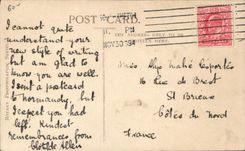 60
POST CARD.
I cannot quite
understand your
new style of writing
but am glad to
know you are well.
I sent a postcard
to Normandy, but
I expect you had
left. Kindest
remembrances from
Clotilde Allen
NOV 30
Miss Aly Mahé
16 Rue de Brest
St Brieuc
Côtes du Nord
France